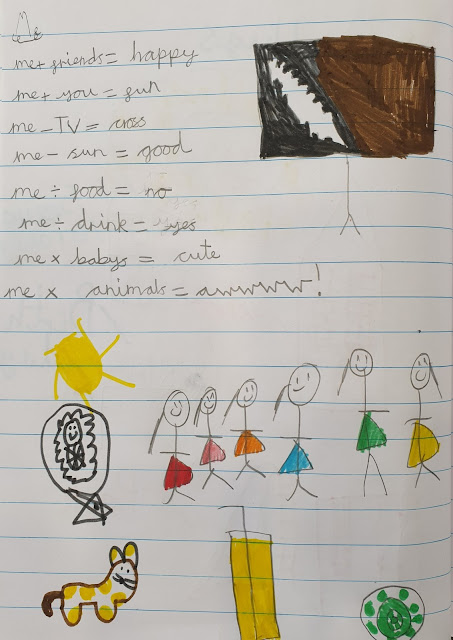 me + friends = happy
me + you = fun
me - TV = cross
me - sun = good
me ÷ food = no
me ÷ drink = yes
me × babys = cute
me × animals = awwww!